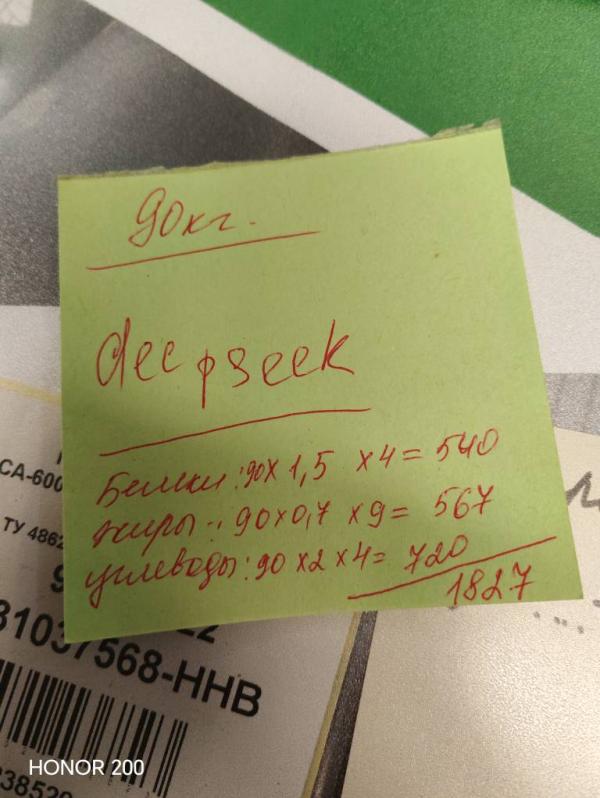 90кг.
deepseek
Белки: 90×1,5 ×4= 540
жиры: 90×0,7 ×9= 567
углеводы: 90×2×4= 720
1827
СА-600
ТУ 4862
31037568-ННВ
HONOR 200